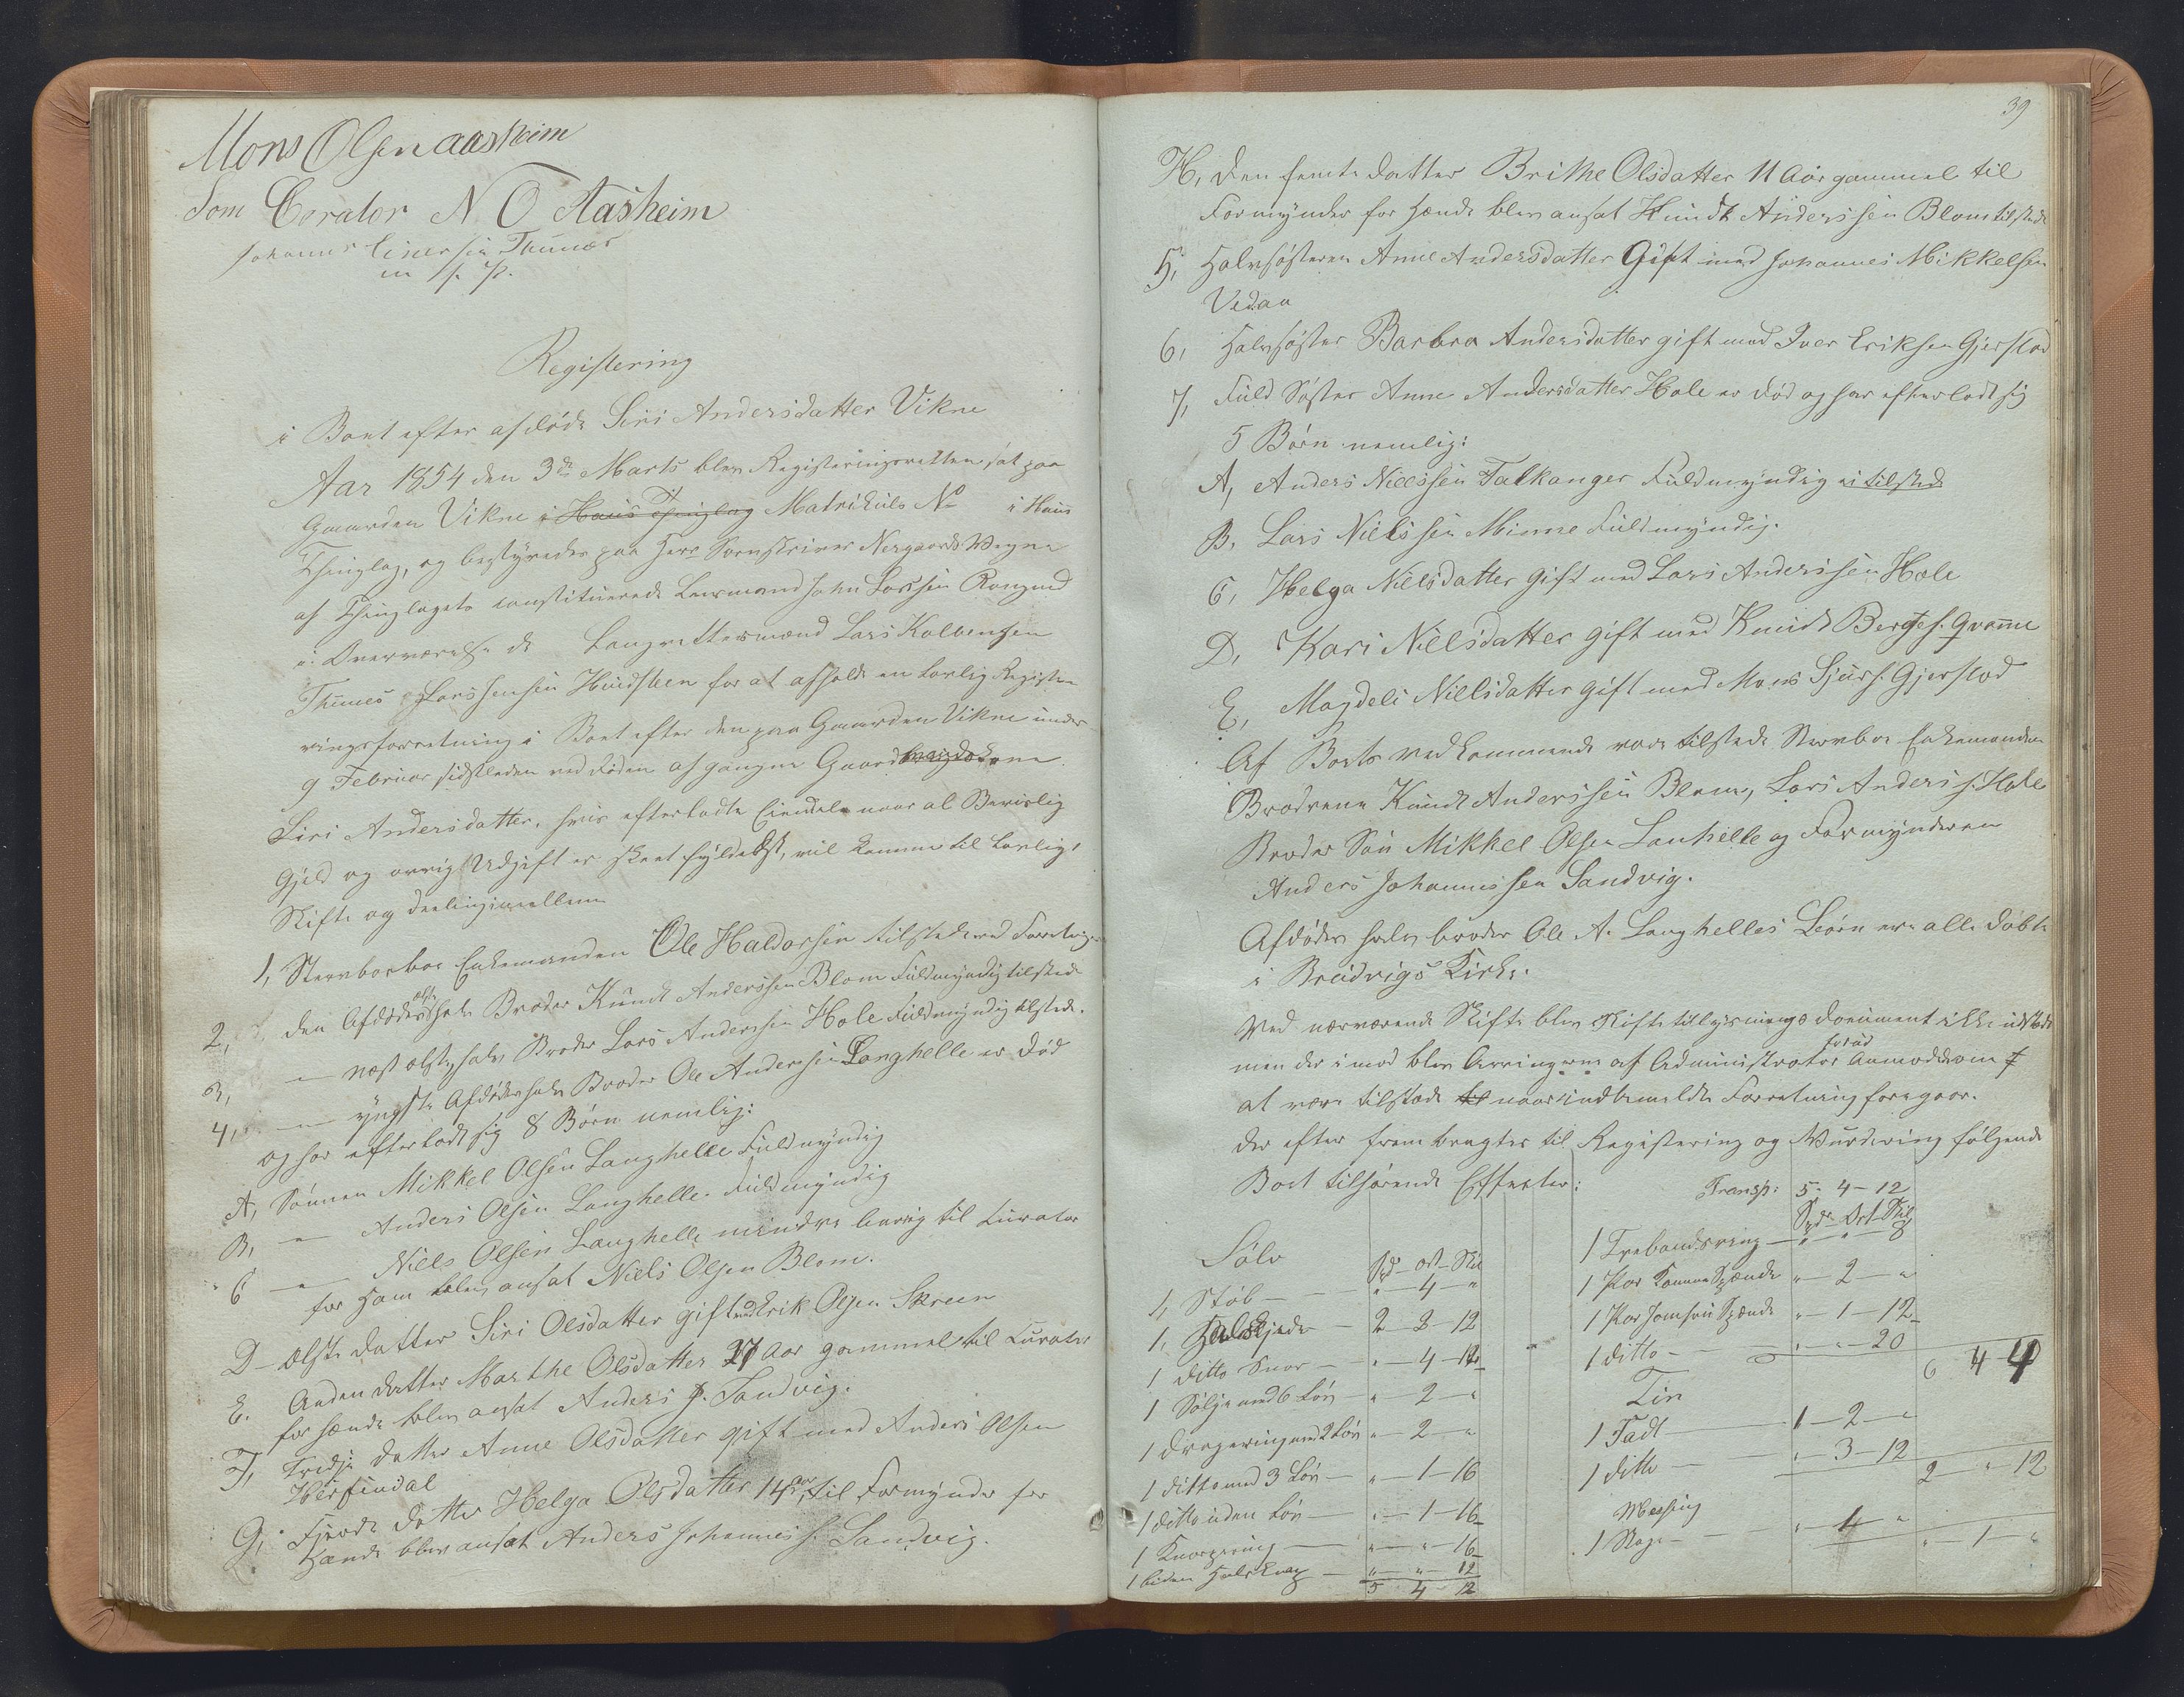 Mons Olsen Aasheim
Som Corator N O Aasheim
Johannes Einersen Thunæs
m. f. P.
Registering
i Boet efter afdøde Siri Andersdatter Vikne
Aar 1854 den 3de Marts blev Registeringsretten sat paa
Gaarden Vikne i Haus Thinglag Matrikuls No i Haus
Thinglag, og bestyredes paa Herr Sorenskriver Nergaards Vegne
af Thinglagets constituerede Lensmand John Larssen
i Overværelse de Laugrettesmænd Lars Kolbensen
Thunes og Lars Jensen Hundsteen for at afholde en lovlig Registe
ringsforretning i Boet efter den paa Gaarden Vikne under
9 Februar sidstleden ved Døden afgangne Gaard
Siri Andersdatter, hvis efterladte Eiendele naar al Bevislig
Gjeld og øvrig Udgift er skeet fyldest, vil komme til lovlig
Skifte og Deeling imellem
1, Stervboe Enkemanden Ole Haldorsen tilstede ved Forretningen
2, den Afdødes ælste halv Broder Knud Anderssen Blom Fuldmyndig tilstede
3, — næst ælste halv Broder Lars Anderssen Hole Fuldmyndig tilstede.
4, — yngste Afdødes halv Broder Ole Anderssen Langhelle er død
og har efterladt sig 8 Børn nemlig:
A, Sønnen Mikkel Olsen Langhelle Fuldmyndig
B, — Anders Olsen Langhelle Fuldmyndig
C — Niels Olsen Langhelle mindre aarig til Curator
for Ham blev ansat Niels Olsen Blom.
D — ælste datter Siri Olsdatter gift med Erik Olsen Skreen
E. Anden datter Marthe Olsdatter 27 Aar gammel til Curator
for hende blev ansat Anders J. Sandvig.
F, Tredje datter Anne Olsdatter gift med Anders Olsen
Herfindal
G, Fjerde datter Helga Olsdatter 14 aar, til Formynder for
Hende blev ansat Anders Johannes s. Sandvig.
39
H, den femte datter Brithe Olsdatter 11 Aar gammel til
Formynder for hende blev ansat Knudt Anderssen Blom tilstede
5, Halvsøsteren Anne Andersdatter Gift med Johannes Mikkelsen
Vedaa
6, Halvsøster Barbra Andersdatter gift med Iver Eriksen Gjerstad
7, Fuld Søster Anne Andersdatter Hole er død og har efterladt sig
5 Børn nemlig:
A, Anders Nielssen Falkanger Fuldmyndig ei tilstede
B, Lars Nielssen Minne Fuldmyndig.
C, Helga Nielsdatter gift med Lars Anderssen Hole
D, Kari Nielsdatter gift med Knudt Berges. Qvame
E, Magdeli Nielsdatter gift med Mons Sjurs. Gjerstad
Af Boets vedkommende vare tilstede Stervboe Enkemanden
Brødrene Knudt Anderssen Blom, Lars Anders s. Hole
Broder Søn Mikkel Olsen Lanhelle og Formynderen
Anders Johannessen Sandvig.
Afdødes halv broder Ole A. Langhelles Børn ere alle døbte
i Breidvigs Kirke.
Ved nærværende Skifte blev Skifte tillysnings Document ikke udstedt
men der i mod blev Arvingerne af Administrator forud Anmodede om
at være tilstæde naar indbemeldte Forretning foregaar.
der efter frembragtes til Registering og Vurdering følgende
Boet tilhørende Effecter:
Sølv Spd — ort — Skil
1, Støb — „ — 4 — „
1, Halskjede — 2 — 3 — 12
1 ditto Snor — „ — 4 — 12
1 Sølje med 6 Løv — „ 2 — „
1 dragering med 2 Løv „ — 2 — „
1 ditto med 3 Løv — „ — 1 — 16
1 ditto uden Løv — „ — 1 — 16
1 Knapering — „ — „ — 16
1 liden Halsknap — „ — „ — 12
5 4 12
Transp: 5 — 4 — 12
Spdr Ort Skil
1 Trebandsring — „ — „ — 8
1 Par Spænder „ — 2 — „
1 Par Spænde „ — 1 — 12
1 ditto — „ — „ — 20
6 4 4
Tin
1 Fadt — 1 — 2 — „
1 ditto — „ — 3 — 12
2 „ — 12
Messing
1 Stage — „ — 1 „
„ — 1 — „